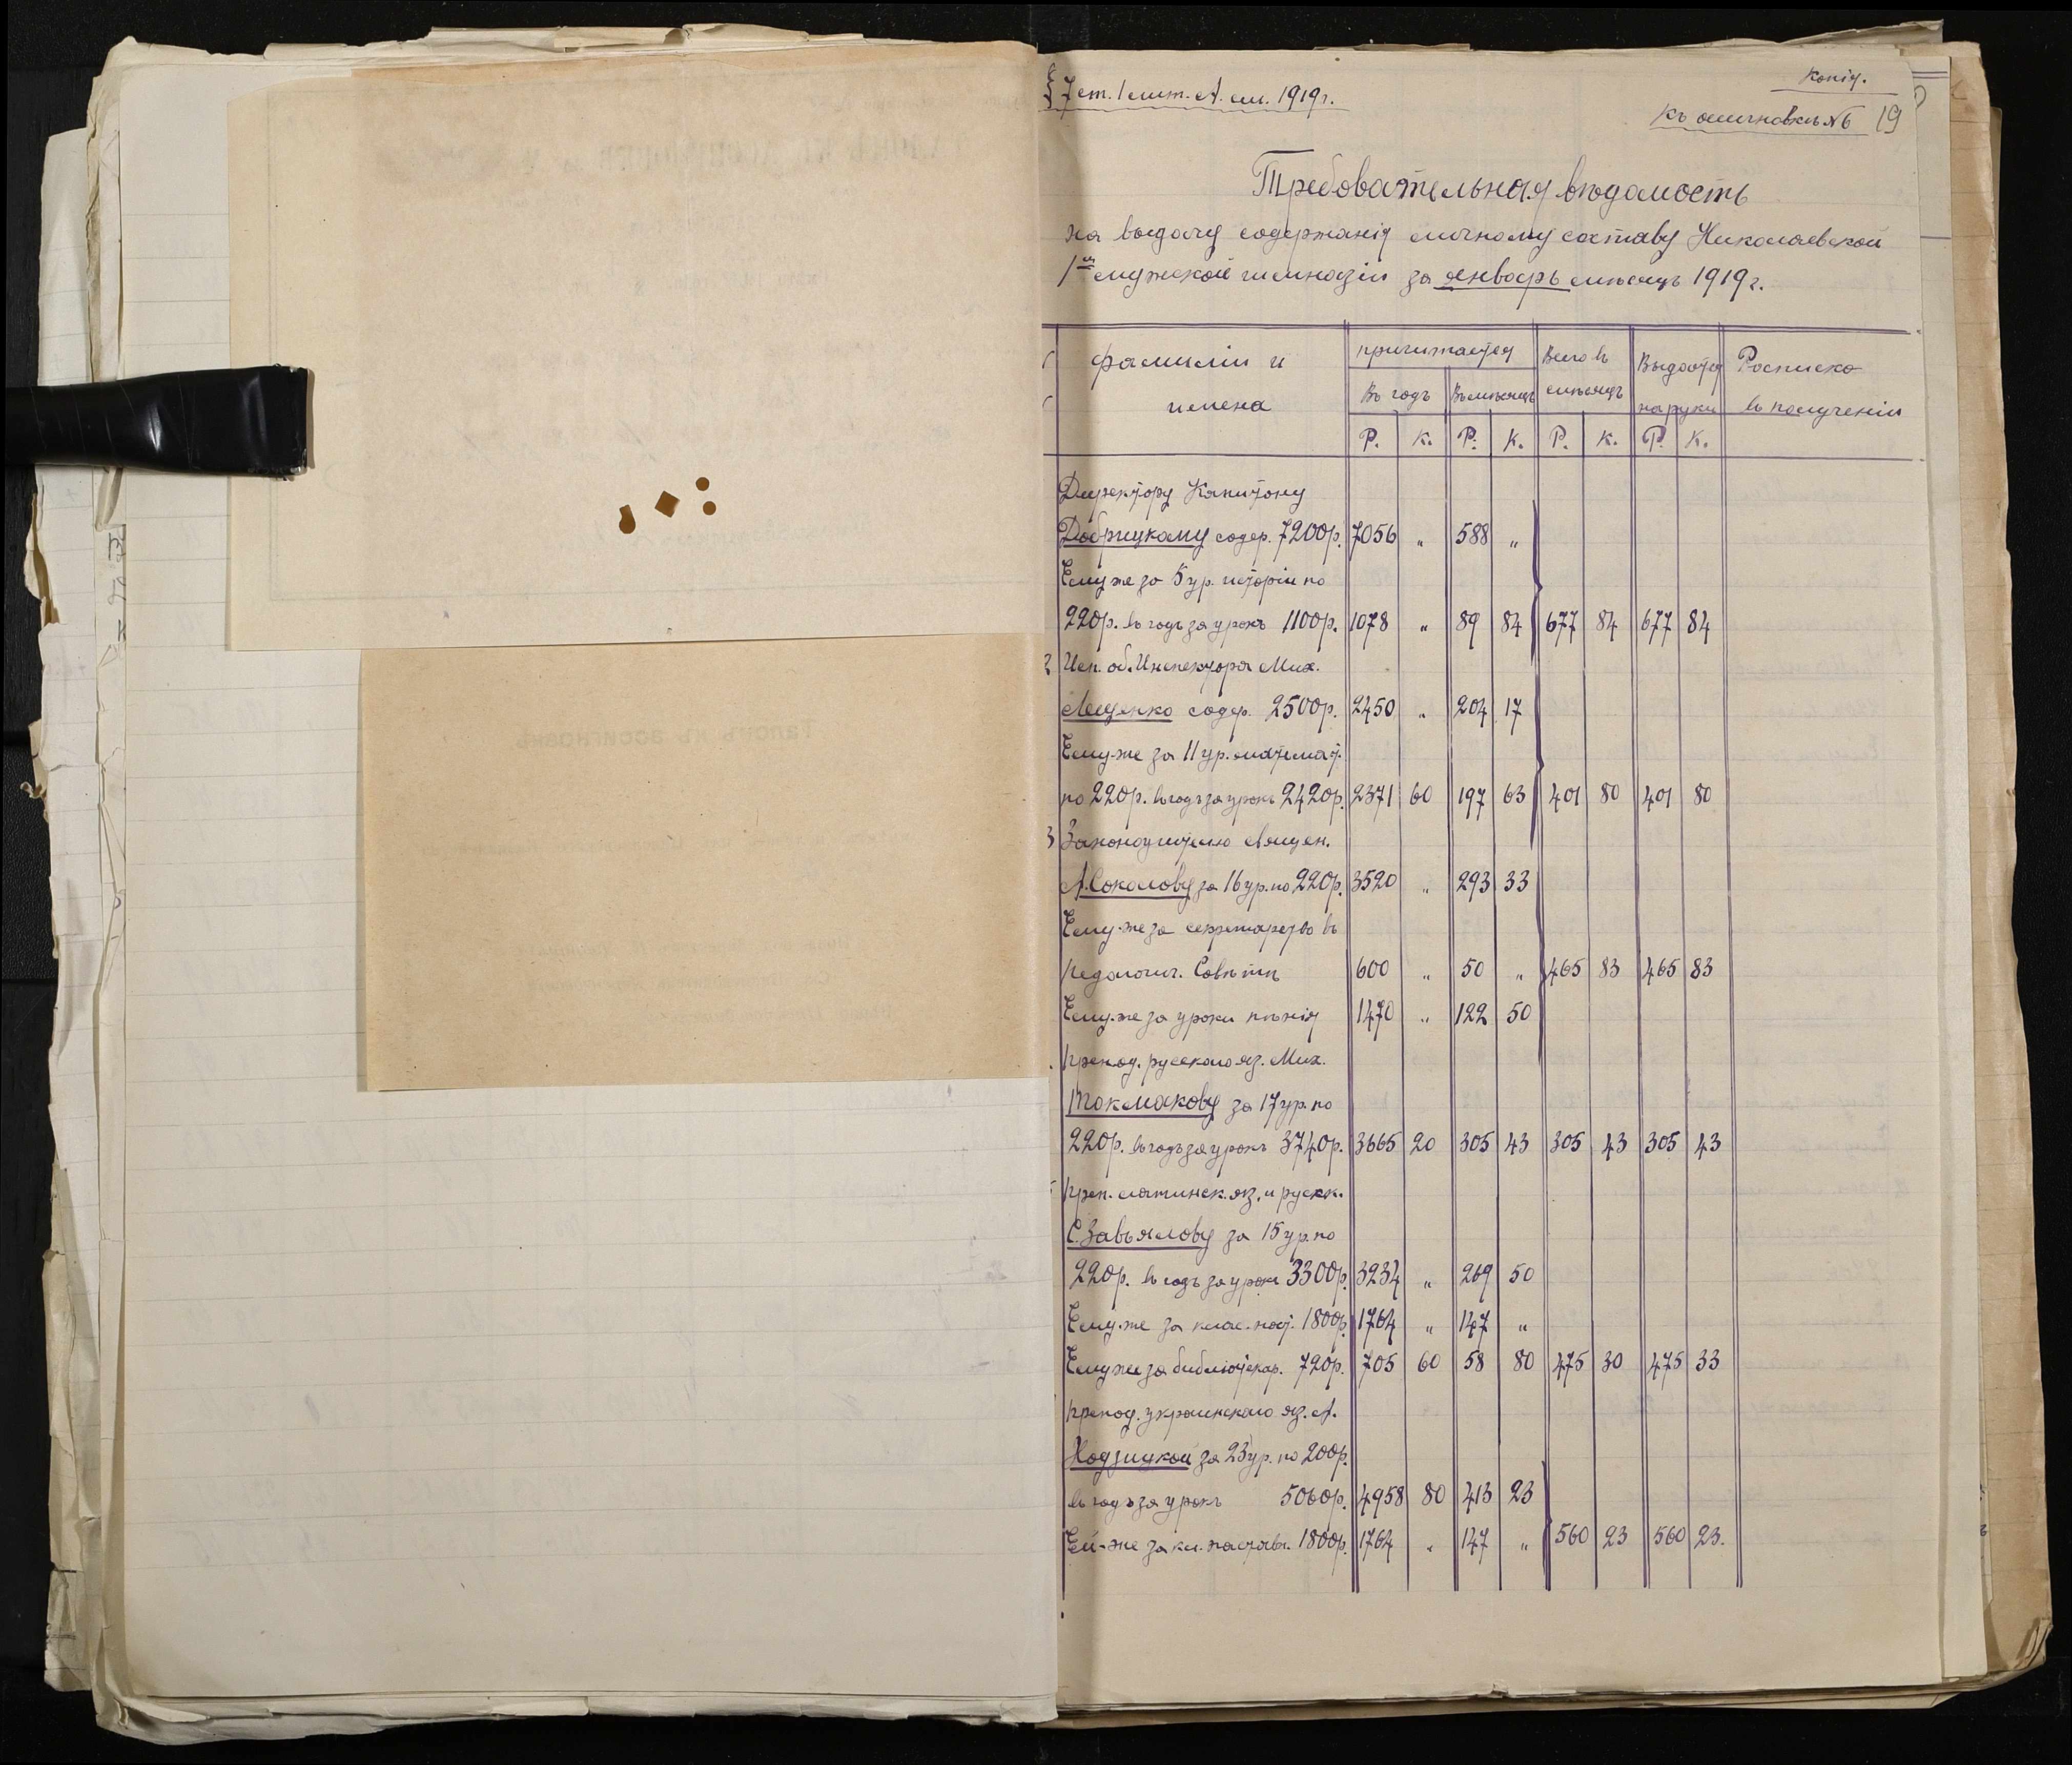 Копія.
§ 7 ст. 1 лит. А. см. 1919 г.
Къ ассигновкѣ № 6 19
Требовательная вѣдомость
на выдачу содержанія личному составу Николаевской
1ой мужской гимназіи за январь мѣсяцъ 1919 г.
Фамиліи и имена причитается Въ годъ Въ мѣсяцъ Всего въ мѣсяцъ Выдается на руки Росписка въ полученіи
Р. К. Р. К. Р. К. Р. К.
Директору Капитону
Добрицкому содер. 7200р. 7056 „ 588 „
Ему же за 5 ур. исторіи по
220р. въ годъ за урокъ 1100р. 1078 „ 89 84 677 84 677 84
2 Исп. об. Инспектора Мих.
Лещенко содер. 2500р. 2450 „ 204 17
Ему-же за 11 ур. математ.
по 220р. въ годъ за урокъ 2420р. 2371 60 197 63 401 80 401 80
3 Законоучителю священ.
А. Соколову за 16 ур. по 220р. 3520 „ 293 33
Ему-же за секретарство въ
педагогич. Совѣтѣ 600 „ 50 „ 465 83 465 83
Ему-же за уроки пѣнія 1470 „ 122 50
препод. русскаго яз. Мих.
Токмакову за 17 ур. по
220р. въ годъ за урокъ 3740р. 3665 20 305 43 305 43 305 43
преп. латинск. яз. и русск.
С. Завьялову за 15 ур. по
220р. въ годъ за урок 3300р. 3234 „ 269 50
Ему-же за клас. наст. 1800р. 1764 „ 147 „
Ему же за библіотекар. 720р. 705 60 58 80 475 30 475 33
препод. украинскаго яз. А.
Ходзицкой за 23 ур. по 200р.
въ годъ за урокъ 5060р. 4958 80 413 23
Ей-же за кл. наставн. 1800р. 1764 „ 147 „ 560 23 560 23.